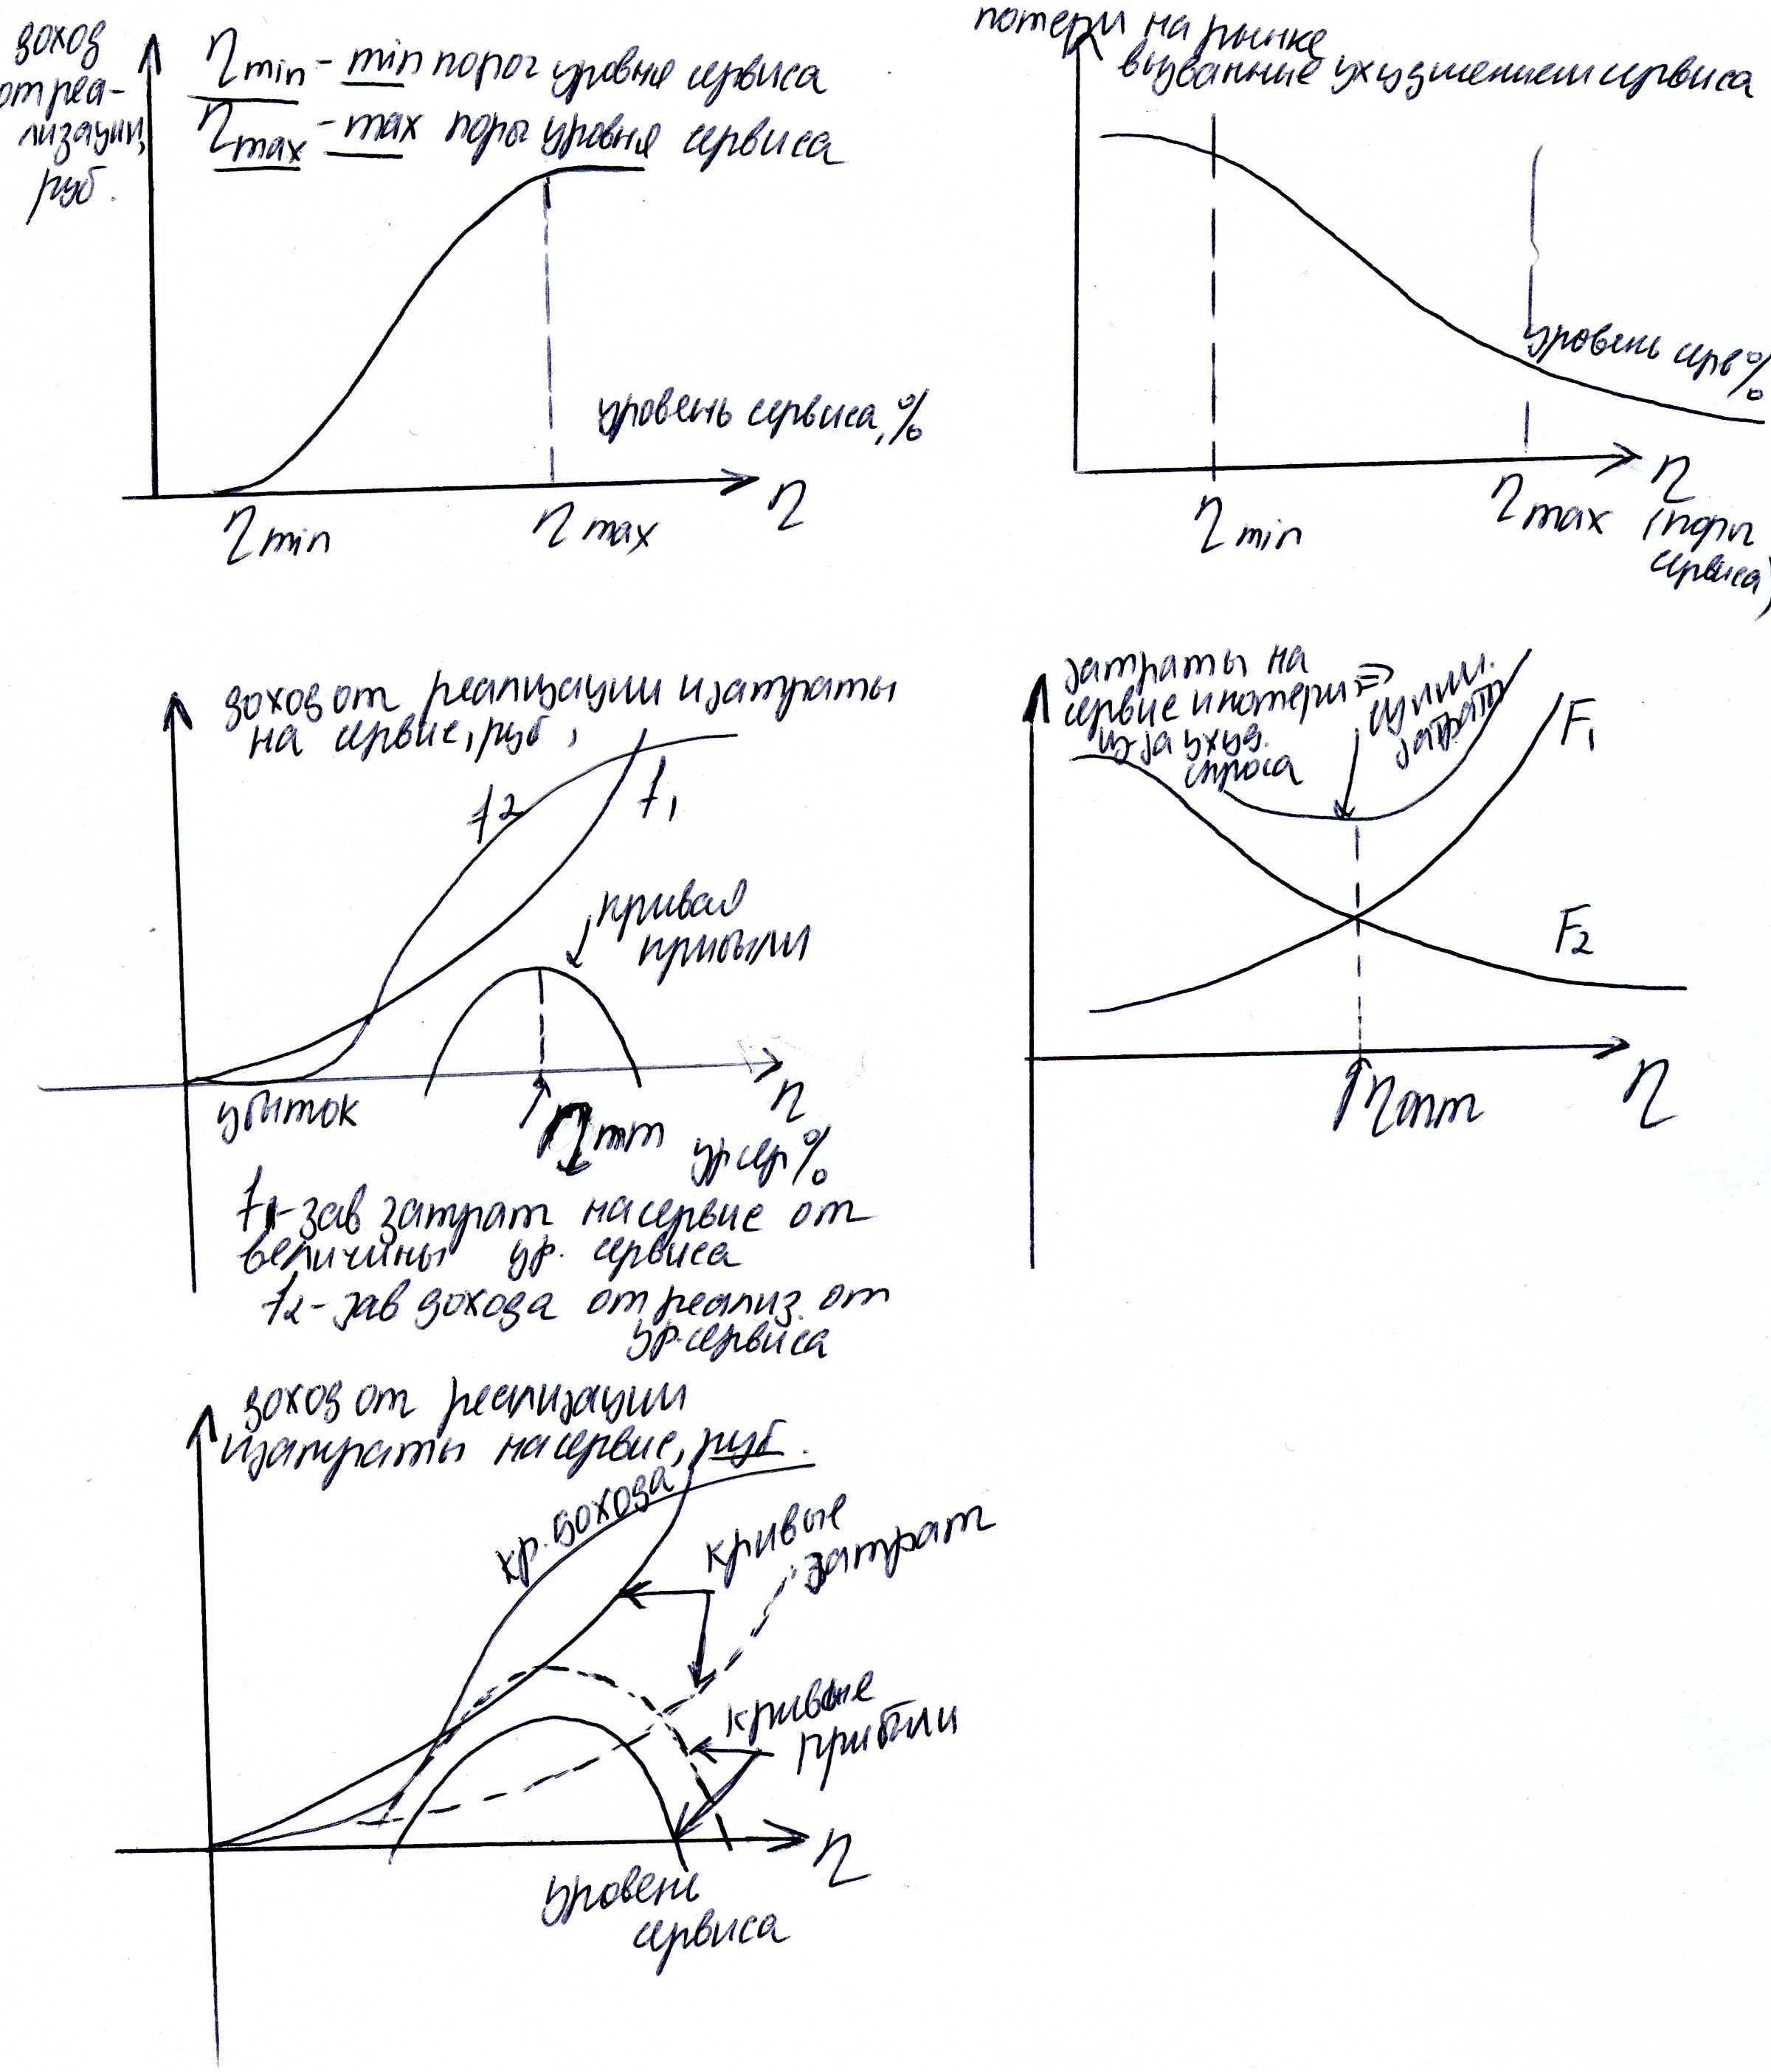 доход
от реа-
лизации,
руб.
ηmin - min порог уровня сервиса
ηmax - max порог уровня сервиса
уровень сервиса, %
η
ηmin
ηmax
потери на рынке
вызванные ухудшением сервиса
уровень серв %
η
ηmin
ηmax
(порог
сервиса)
доход от реализации и затраты
на сервис, руб,
f2
f1
кривая
прибыли
убыток
η
ηопт
ур сер %
f1 - зав затрат на сервис от
величины ур. сервиса
f2 - зав дохода от реализ. от
ур. сервиса
затраты на
сервис и потери =>
из за ухуд.
спроса
сумм.
затраты
F1
F2
ηопт
η
доход от реализации
и затраты на сервис, руб.
кр. дохода
кривые
затрат
кривые
прибыли
η
уровень
сервиса